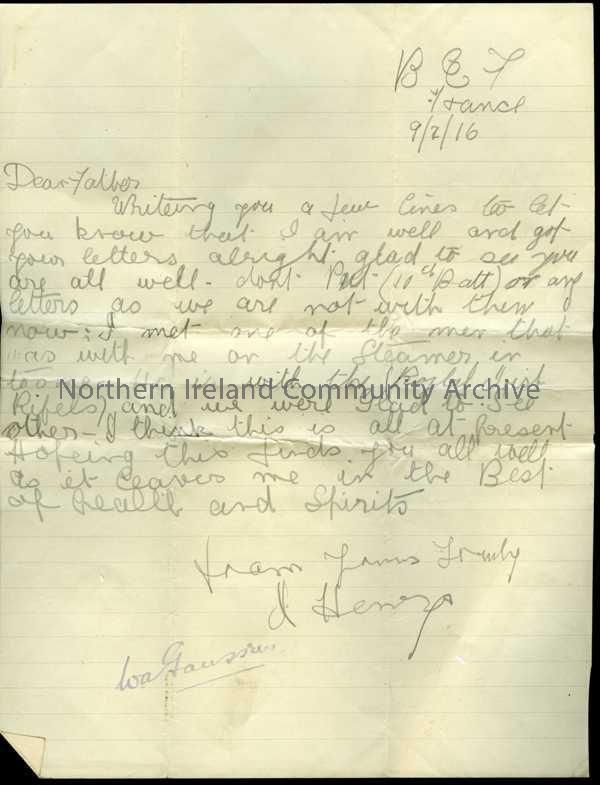 B E F
France
9/2/16
Dear Father
Writeing you a few lines to let
you know that I am well and got
your letters alright glad to see you
are all well. dont Put (10th Batt) on any
letters as we are not with them
now: I met one of the men that
was with me on the Steamer in
Northern Ireland Community Archive
he is with the (Royal Irish
Rifels) and we were glad to See
other - I think this is all at Present
Hopeing this finds you all well
as it leaves me in the Best
of health and Spirits
from yours Truly
J Henry